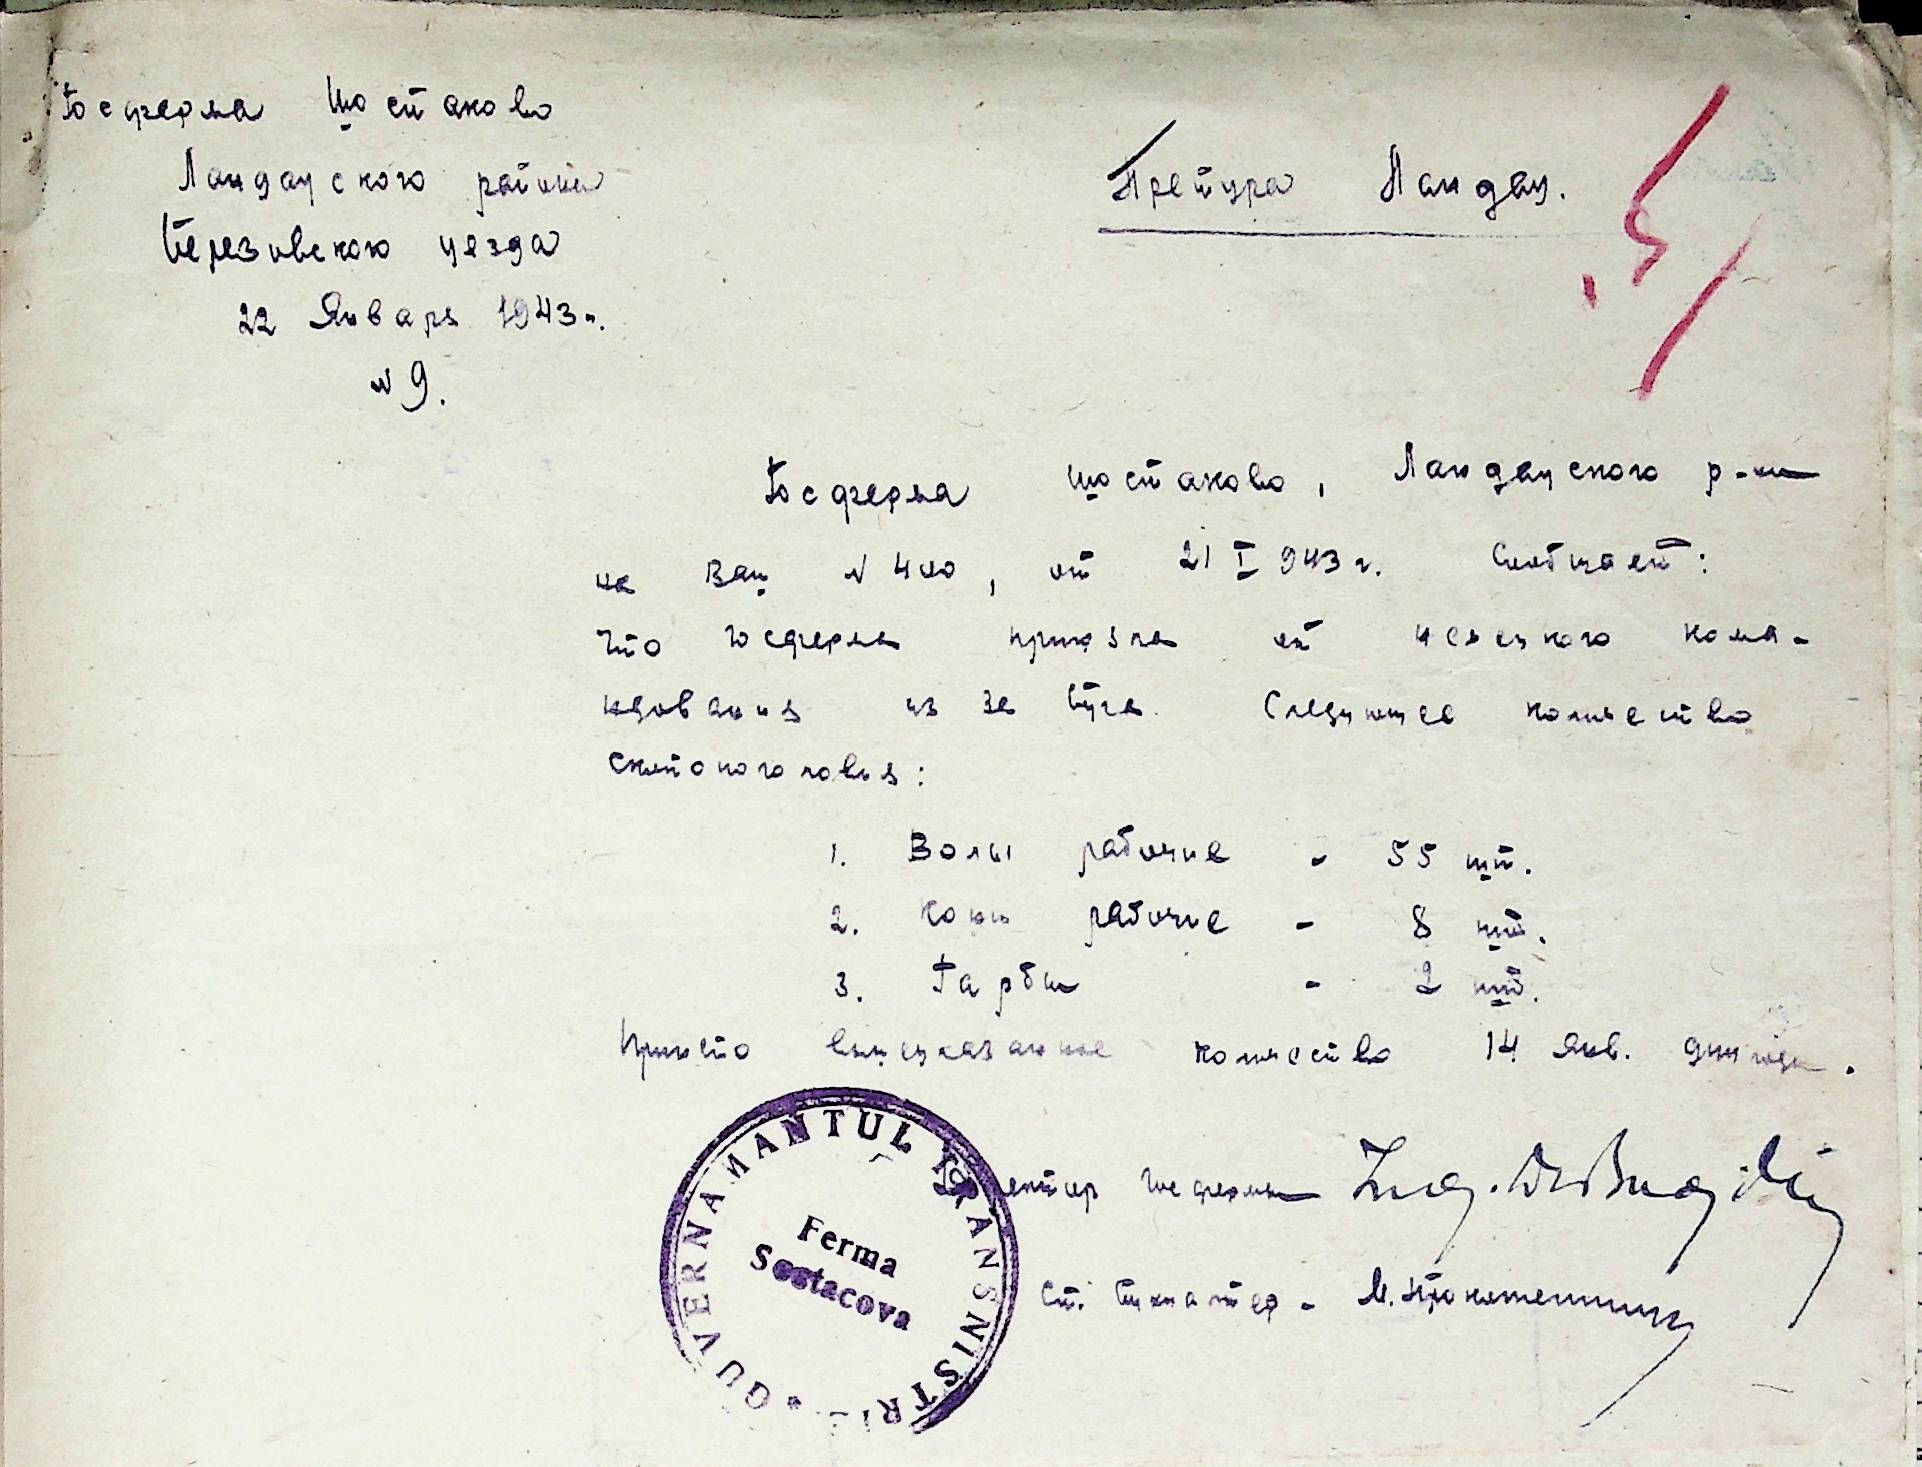 Госферма Шостаково
Ландауского района
Березовского уезда
22 Января 1943 г.
№ 9.
Претура Ландау.
Госферма Шостаково, Ландауского р-на
на Ваш № 400, от 21 I 943 г. Сообщает:
что госферма приняла от немецкого кома-
ндования из за Буга Следующее количество
скотопоголовья:
1. Волы рабочие - 55 шт.
2. Кони рабочие - 8 шт.
3. Гарбы - 2 шт.
Принято вышеуказанное количество 14 янв. с/года.
Директор Госфермы Ing.
Ст. Бухгалтер - М.
GUVERNAMANTUL TRANSNISTRI
Ferma
Sostacova